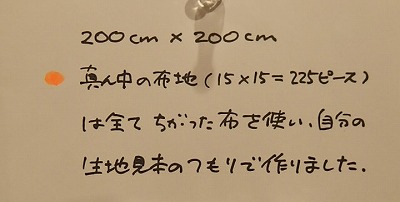 200cm × 200cm
真ん中の布地(15×15=225ピース)
は全て ちがった布を使い、自分の
生地見本のつもりで作りました.